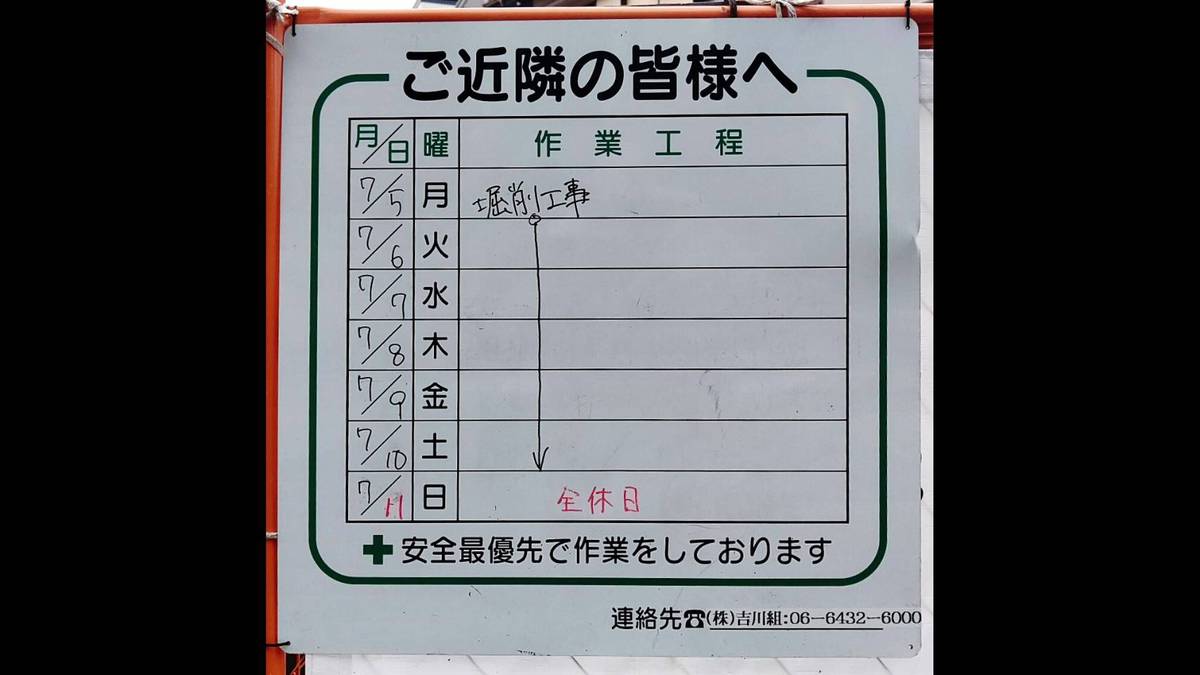 ご近隣の皆様へ
月/日 曜 作業工程
7/5 月 堀削工事
7/6 火
7/7 水
7/8 木
7/9 金
7/10 土
7/11 日 全休日
安全最優先で作業をしております
連絡先☎(株)吉川組:06-6432-6000